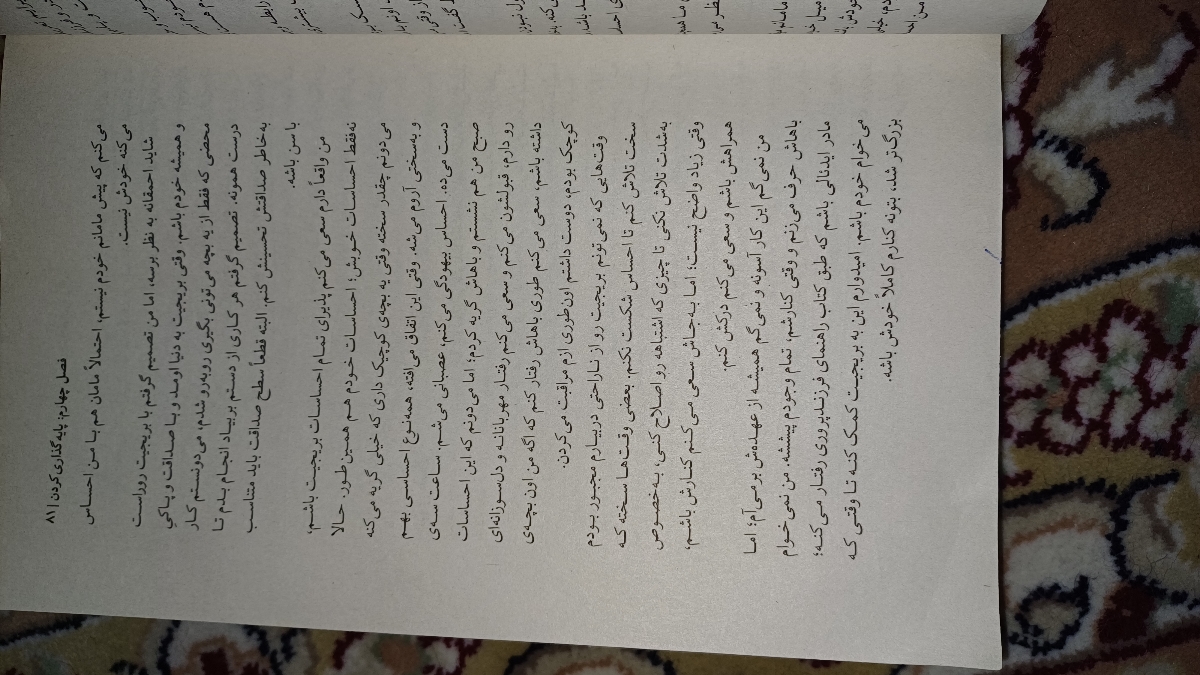 فصل چهارم: پایه گذاری کردن | ۸۱
می‌کنم که پیش مامانم خودم نیستم، احتمالاً مامان هم با من احساس
می‌کنه خودش نیست.
شاید احمقانه به نظر برسه، اما من تصمیم گرفتم با بریجیت روراست
و همیشه خودم باشم. وقتی بریجیت به دنیا اومد و با صداقت و پاکیِ
محضی که فقط از یه بچه می‌تونی بگیری روبه‌رو شدم، می‌دونستم کار
درست همونه. تصمیم گرفتم هر کاری از دستم بربیاد انجام بدم تا
به‌خاطر صداقتش تحسینش کنم. البته قطعاً سطح صداقت باید متناسب
با سن باشه.
من واقعاً دارم سعی می‌کنم پذیرای تمام احساسات بریجیت باشم،
نه‌فقط احساسات خوبش؛ احساسات خودم هم همین‌طور. حالا
می‌دونم چقدر سخته وقتی یه بچه‌ی کوچک داری که خیلی گریه می‌کنه
و به‌سختی آروم می‌شه. وقتی این اتفاق می‌افته، همه‌نوع احساسی بهم
دست می‌ده. احساس بیهودگی می‌کنم، عصبانی می‌شم. ساعت سه‌ی
صبح من هم نشستم و باهاش گریه کردم؛ اما می‌دونم که این احساسات
رو دارم، قبولشون می‌کنم و سعی می‌کنم رفتار مهربانانه و دل‌سوزانه‌ای
داشته باشم. سعی می‌کنم طوری باهاش رفتار کنم که اگه من اون بچه‌ی
کوچک بودم، دوست داشتم اون‌طوری ازم مراقبت می‌کردن.
وقت‌هایی که نمی‌تونم بریجیت رو از ناراحتی دربیارم مجبور بودم
سخت تلاش کنم تا احساس شکست نکنم. بعضی وقت‌ها سخته که
به‌شدت تلاش نکنی تا چیزی که اشتباهه رو اصلاح کنی، به‌خصوص
وقتی زیاد واضح نیست؛ اما به‌جاش سعی می‌کنم کنارش باشم،
همراهش باشم و سعی می‌کنم درکش کنم.
من نمی‌گم این کار آسونه و نمی‌گم همیشه از عهده‌ش برمی‌آم؛ اما
باهاش حرف می‌زنم و وقتی کنارشم، تمام وجودم پیششه. من نمی‌خوام
مادر ایدئالی باشم که طبق کتاب راهنمای فرزندپروری رفتار می‌کنه؛
می‌خوام خودم باشم. امیدوارم این به بریجیت کمک کنه تا وقتی که
بزرگ‌تر شد، بتونه کنارم کاملاً خودش باشه.